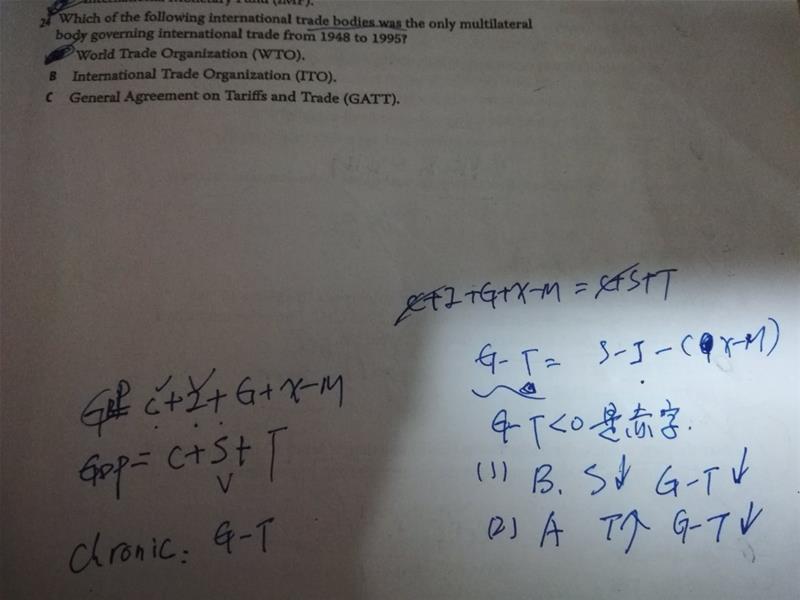 International Monetary Fund (IMF).
24 Which of the following international trade bodies was the only multilateral
body governing international trade from 1948 to 1995?
World Trade Organization (WTO).
B International Trade Organization (ITO).
C General Agreement on Tariffs and Trade (GATT).
C+I+G+X-M = C+S+T
G-T = S-I-(X-M)
G-T<0 是赤字.
(1) B. S↓ G-T↓
(2) A T↑ G-T↓
GDP= C+I+G+X-M
GDP= C+S+T
Chronic: G-T